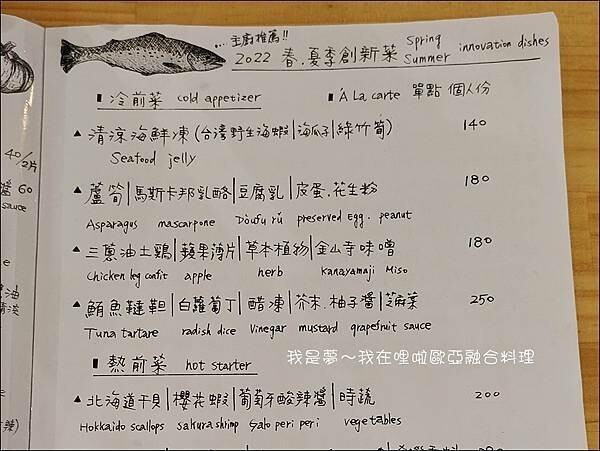 ...主廚推薦!!
2022 春.夏季創新菜 Spring Summer innovation dishes
冷前菜 cold appetizer Á La carte 單點 個人份
清涼海鮮凍(台灣野生海蝦|海瓜子|綠竹筍) 140
Seafood jelly
蘆筍|馬斯卡邦乳酪|豆腐乳|皮蛋.花生粉 180
Asparagus mascarpone Dòufu rǔ preserved Egg. peanut
三蔥油土鷄|蘋果薄片|草本植物|金山寺味噌 180
Chicken leg confit apple herb Kanayamaji Miso
鮪魚韃靼|白蘿蔔丁|醋凍|芥末.柚子醬|芝麻菜 250
Tuna tartare radish dice Vinegar mustard grapefruit sauce
我是夢～我在哩啦歐亞融合料理
熱前菜 hot starter
北海道干貝|櫻花蝦|葡萄牙酸辣醬|時蔬 200
Hokkaido scallops sakura shrimp Galo peri peri vegetables
40/2片
醬 60
sauce